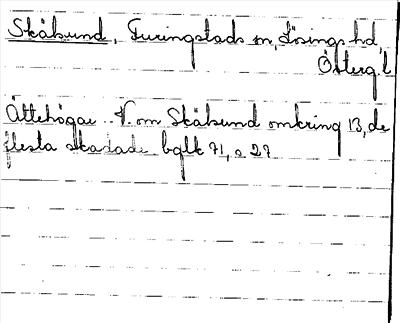 Skälsund, Furingstads sn, Lösings hd,
Österg'l
Ättehögar. V. om Skälsund omkring 13, de
flesta skadade bglk 71, o 27